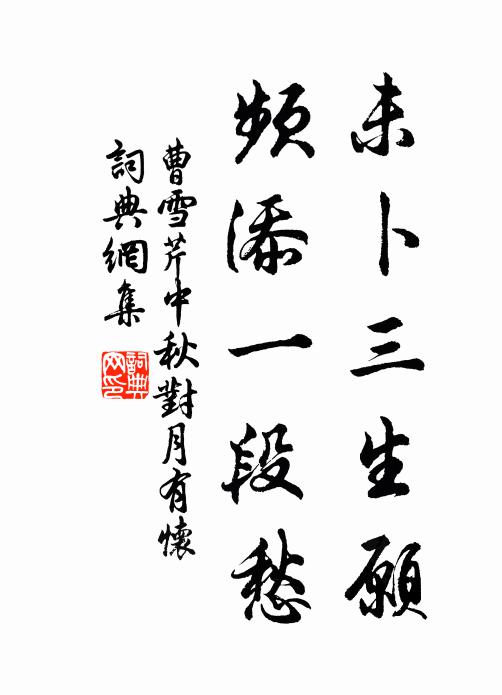 未卜三生願
頻添一段愁
曹雪芹中秋對月有懷
詞典網集
詞典
网印